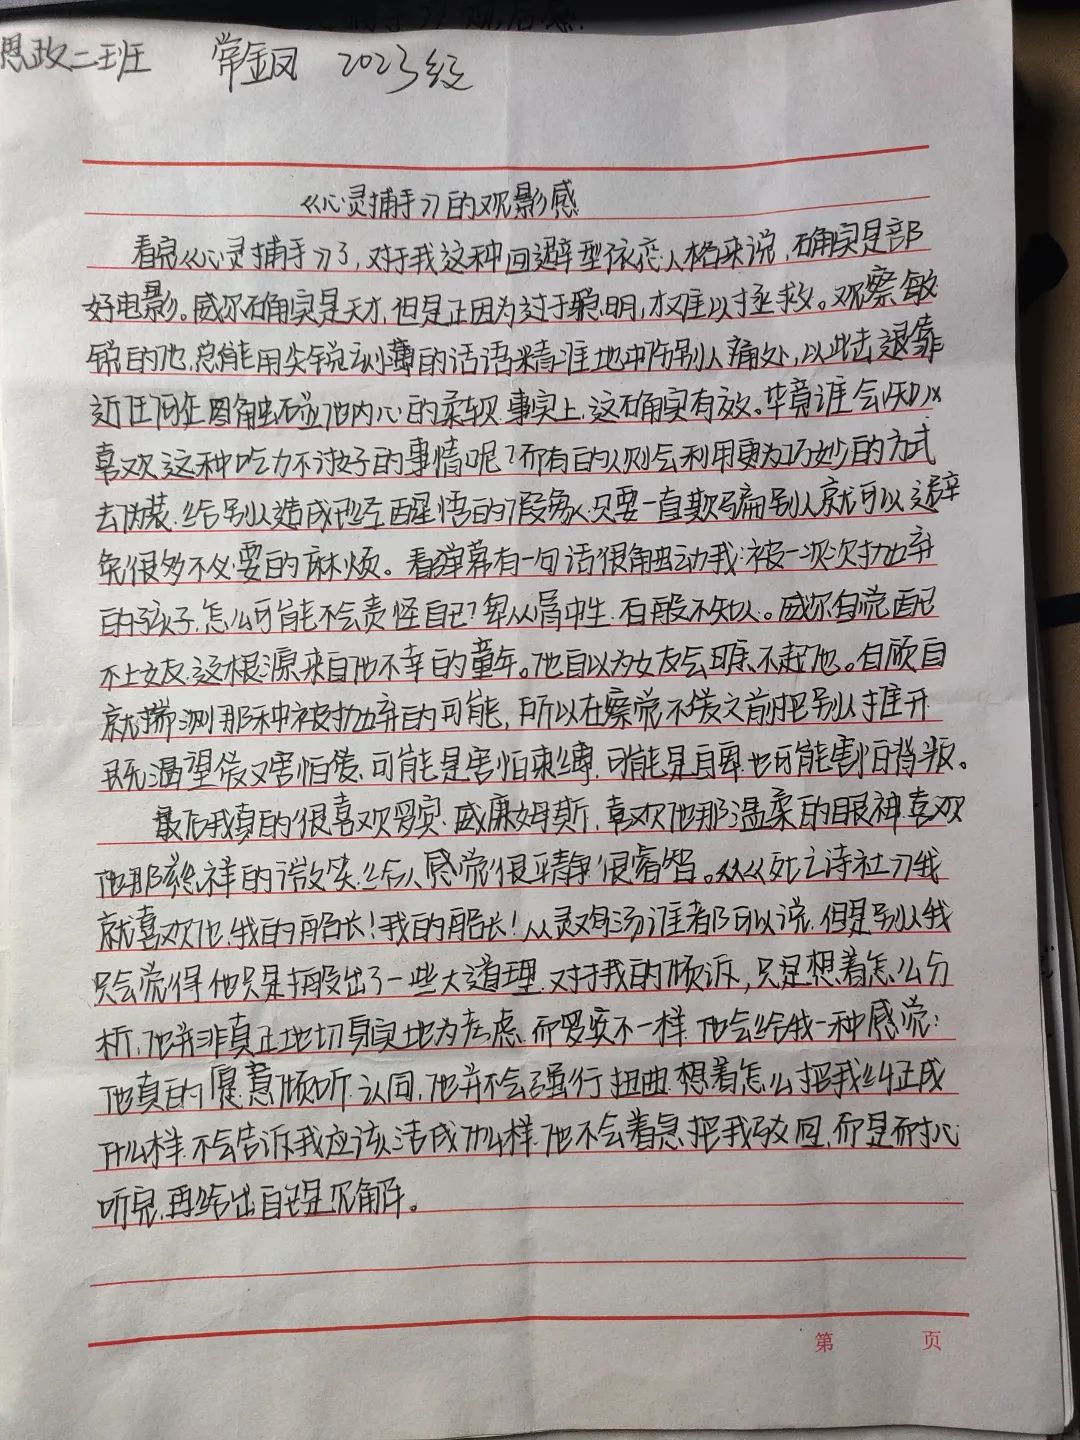 观后感
思政二班 常金凤 2023级
《心灵捕手》的观影感
看完《心灵捕手》了，对于我这种回避型依恋人格来说，确实是部
好电影。威尔确实是天才，但是正因为过于聪明，才难以拯救。观察敏
锐的他，总能用尖锐刻薄的话语精准地中伤别人痛处，以此去退靠
近任何企图触碰他内心的柔软.事实上，这确实有效。毕竟谁会
喜欢这种吃力不讨好的事情呢？而有的人则会利用更为巧妙的方式
去伪装.给别人造成已经醒悟的假象.只要一直欺骗别人就可以避
免很多不必要的麻烦。看弹幕有一句话很触动我：被一次次抛弃
的孩子.怎么可能不会责怪自己？卑从骨中生.百般不如人。威尔自觉配
不上女友.这根源来自他不幸的童年。他自以为女友会瞧不起他。自顾自
就揣测那种被抛弃的可能，所以在察觉不爱之前把别人推开
既渴望爱又害怕爱.可能是害怕束缚.可能是自卑.也可能害怕背叛。
最后我真的很喜欢罗宾.威廉姆斯，喜欢他那温柔的眼神.喜欢
他那慈祥的微笑.给人感觉很平静很睿智。从《死亡诗社》我
就喜欢他.我的船长！我的船长！心灵鸡汤谁都可以说.但是别人我
只会觉得他只是搬出了一些大道理.对于我的倾诉，只是想着怎么分
析，他并非真正地切身实地为考虑.而罗宾不一样.他会给我一种感觉：
他真的愿意倾听.认同，他并不会强行扭曲.想着怎么把我纠正成
什么样.不会告诉我应该活成什么样.他不会着急把我驳回，而是耐心
听完.再给出自己见解。
第 页